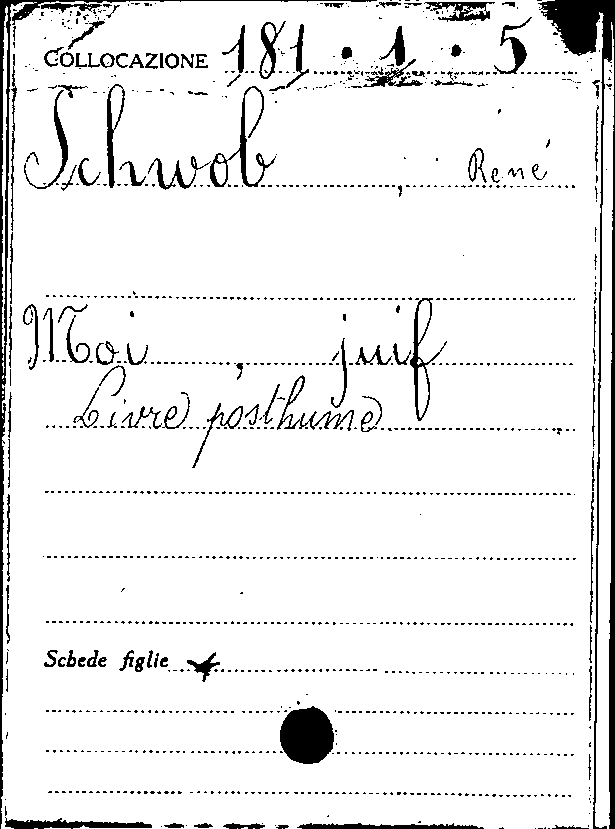 COLLOCAZIONE 181 · 1 · 5
Schwob, René
Moi, juif
Livre posthume
Schede figlie